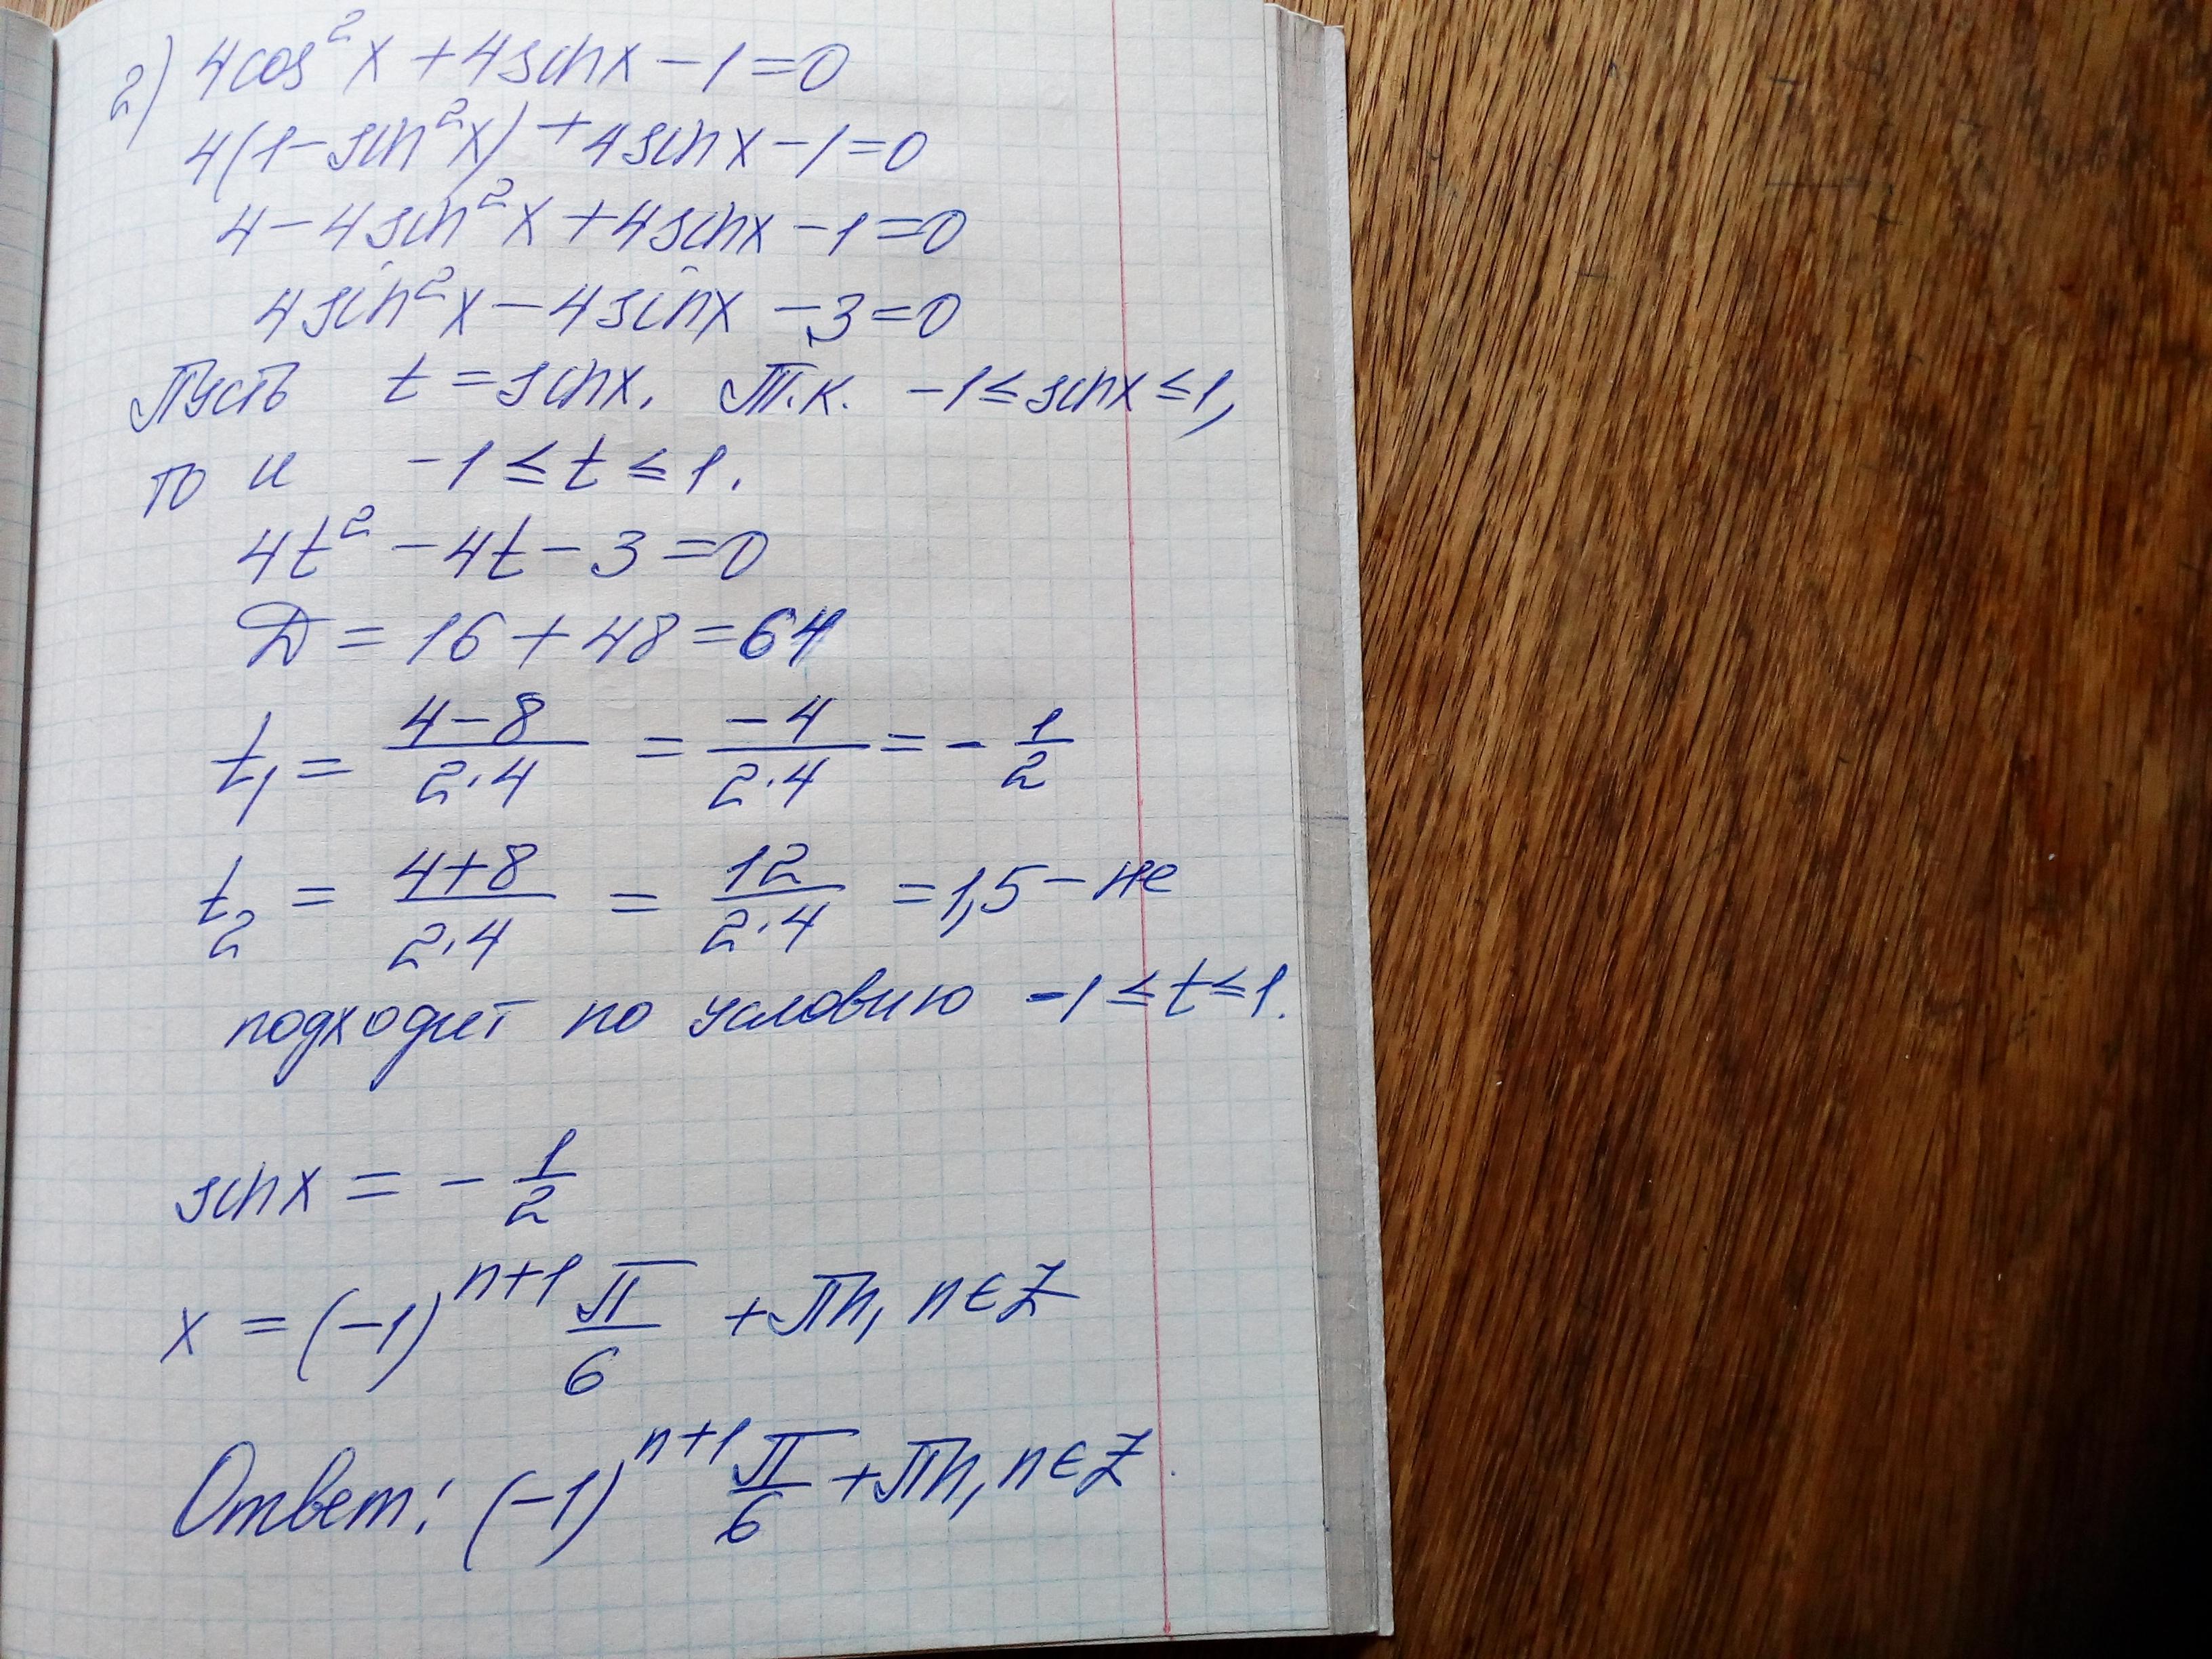 2) 4cos²x + 4sinx - 1 = 0
4(1 - sin²x) + 4sinx - 1 = 0
4 - 4sin²x + 4sinx - 1 = 0
4sin²x - 4sinx - 3 = 0
Пусть t = sinx. Т.к. -1 ≤ sinx ≤ 1,
то и -1 ≤ t ≤ 1.
4t² - 4t - 3 = 0
D = 16 + 48 = 64
t₁ = (4-8)/(2·4) = (-4)/(2·4) = -1/2
t₂ = (4+8)/(2·4) = 12/(2·4) = 1,5 - не
подходит по условию -1 ≤ t ≤ 1.
sinx = -1/2
x = (-1)ⁿ⁺¹ π/6 + πn, n ∈ Z
Ответ: (-1)ⁿ⁺¹ π/6 + πn, n ∈ Z.